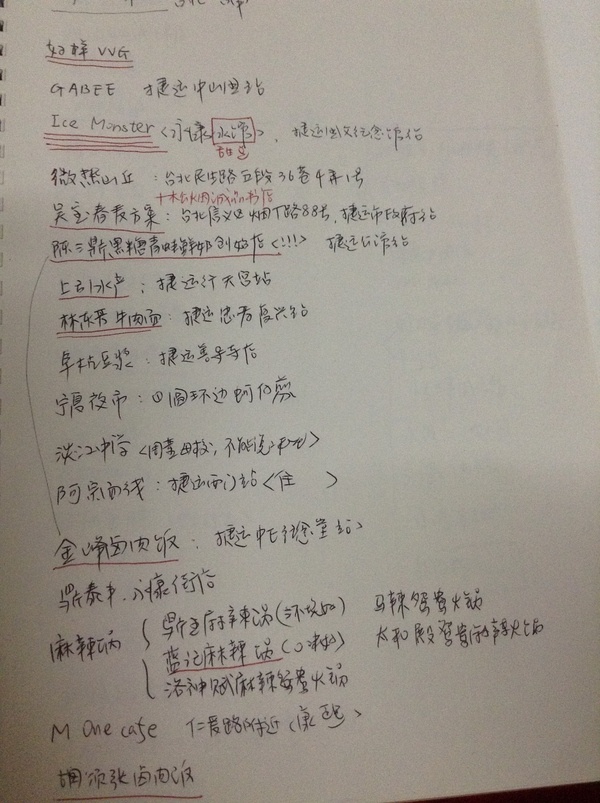 好样 VVG
GABEE 捷运中山国站
Ice Monster <永康冰馆>. 捷运国父纪念馆站
微热山丘：台北民生路五段36巷4弄1号
吴宝春麦方案：台北信义区烟厂路88号，捷运市政府站
陈三鼎黑糖青蛙鲜奶创始店<!!!> 捷运公馆站
上引水产：捷运行天宫站
林东芳牛肉面：捷运忠孝复兴站
阜杭豆浆：捷运善导寺站
宁夏夜市：圆环边蚵仔煎
淡江中学<周董母校，不能说>
阿宗面线：捷运西门站<住 >
金峰卤肉饭：捷运中正纪念堂站
鼎泰丰．永康街店
麻辣锅
鼎王麻辣锅 马辣鸳鸯火锅
蓝记麻辣锅 太和殿鸳鸯麻辣火锅
洛神赋麻辣鸳鸯火锅
M One cafe 仁爱路附近<康熙>
胡须张卤肉饭